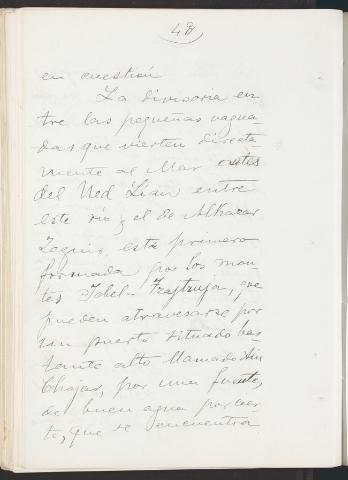 en cuestión
La divisoria en
tre las pequeñas vagua
das que vierten directa
mente al Mar antes
del Ued Lian entre
este río y el de Alkazar
Zeguir, esta primero
formada por los mon-
tes Jebel-, que
pueden atravesarse por
un puerto situado bas
tante alto llamado Ain
Chajar, por una fuente,
de buen agua por cier-
to, que se encuentra